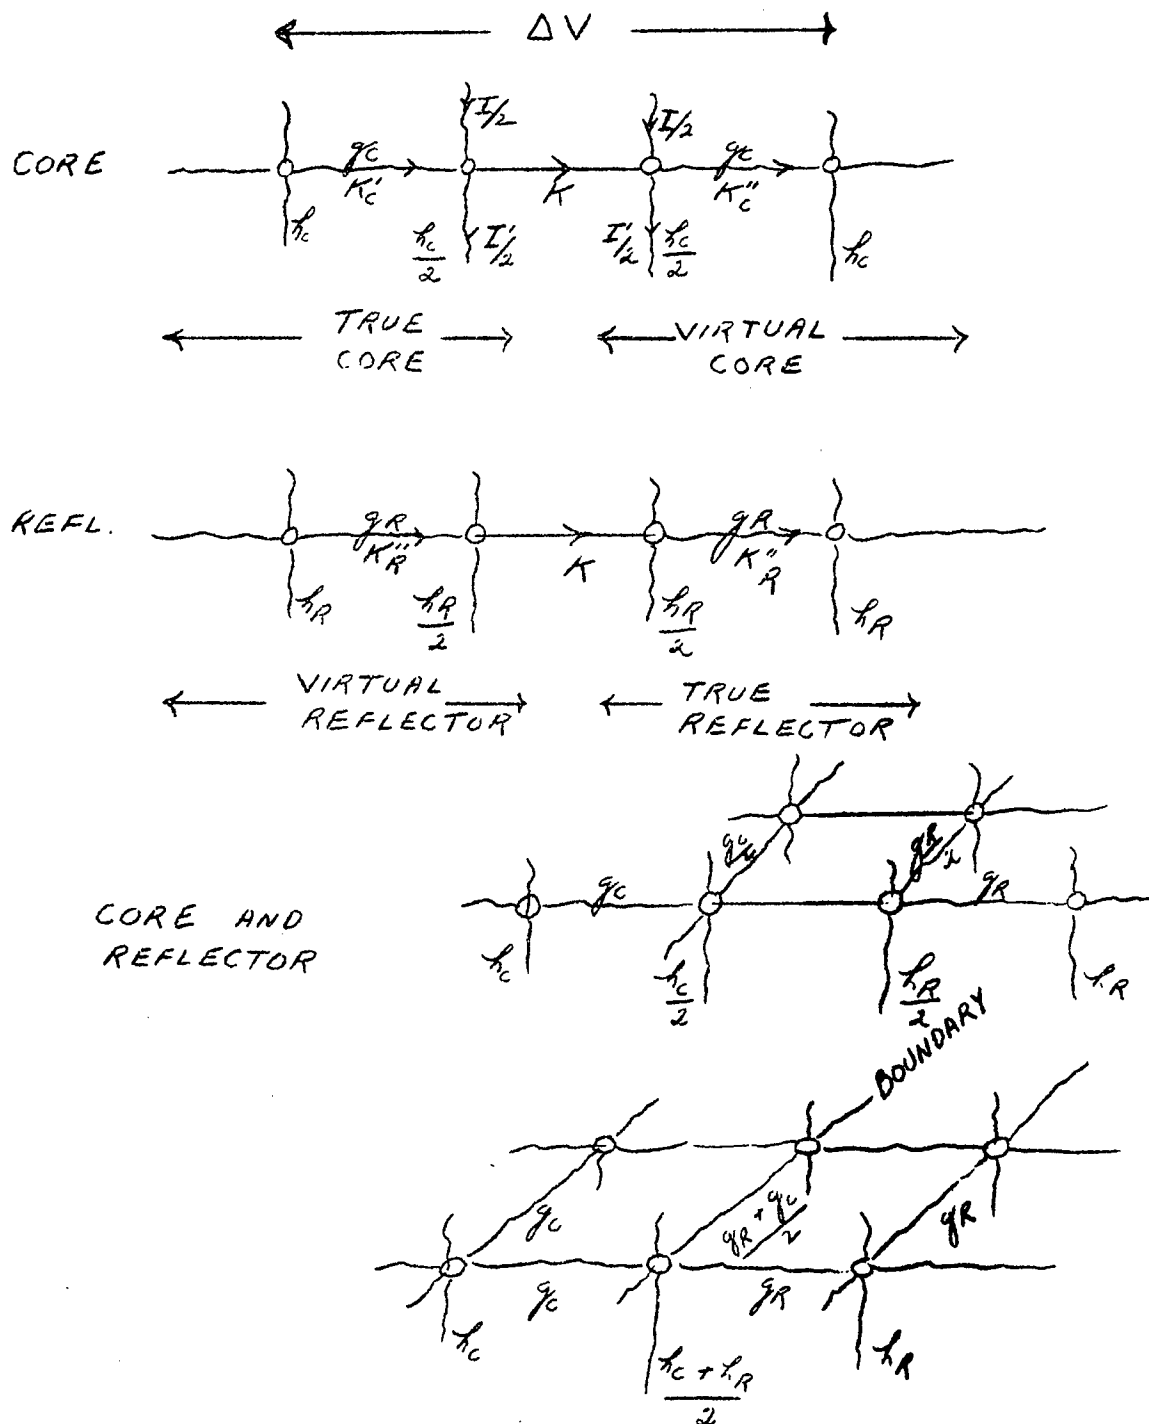 ΔV
I/2 I/2
CORE gc gc
K'c K K''c
hc hc/2 I'/2 I'/2 hc/2 hc
TRUE CORE
VIRTUAL CORE
REFL. gR gR
K'''R K K''R
hR hR/2 hR/2 hR
VIRTUAL REFLECTOR
TRUE REFLECTOR
gR/2
CORE AND REFLECTOR
gc gR
hc hc/2 hR/2 hR
BOUNDARY
gc gR + gc/2 gR
gc gR
hc hc + hR/2 hR